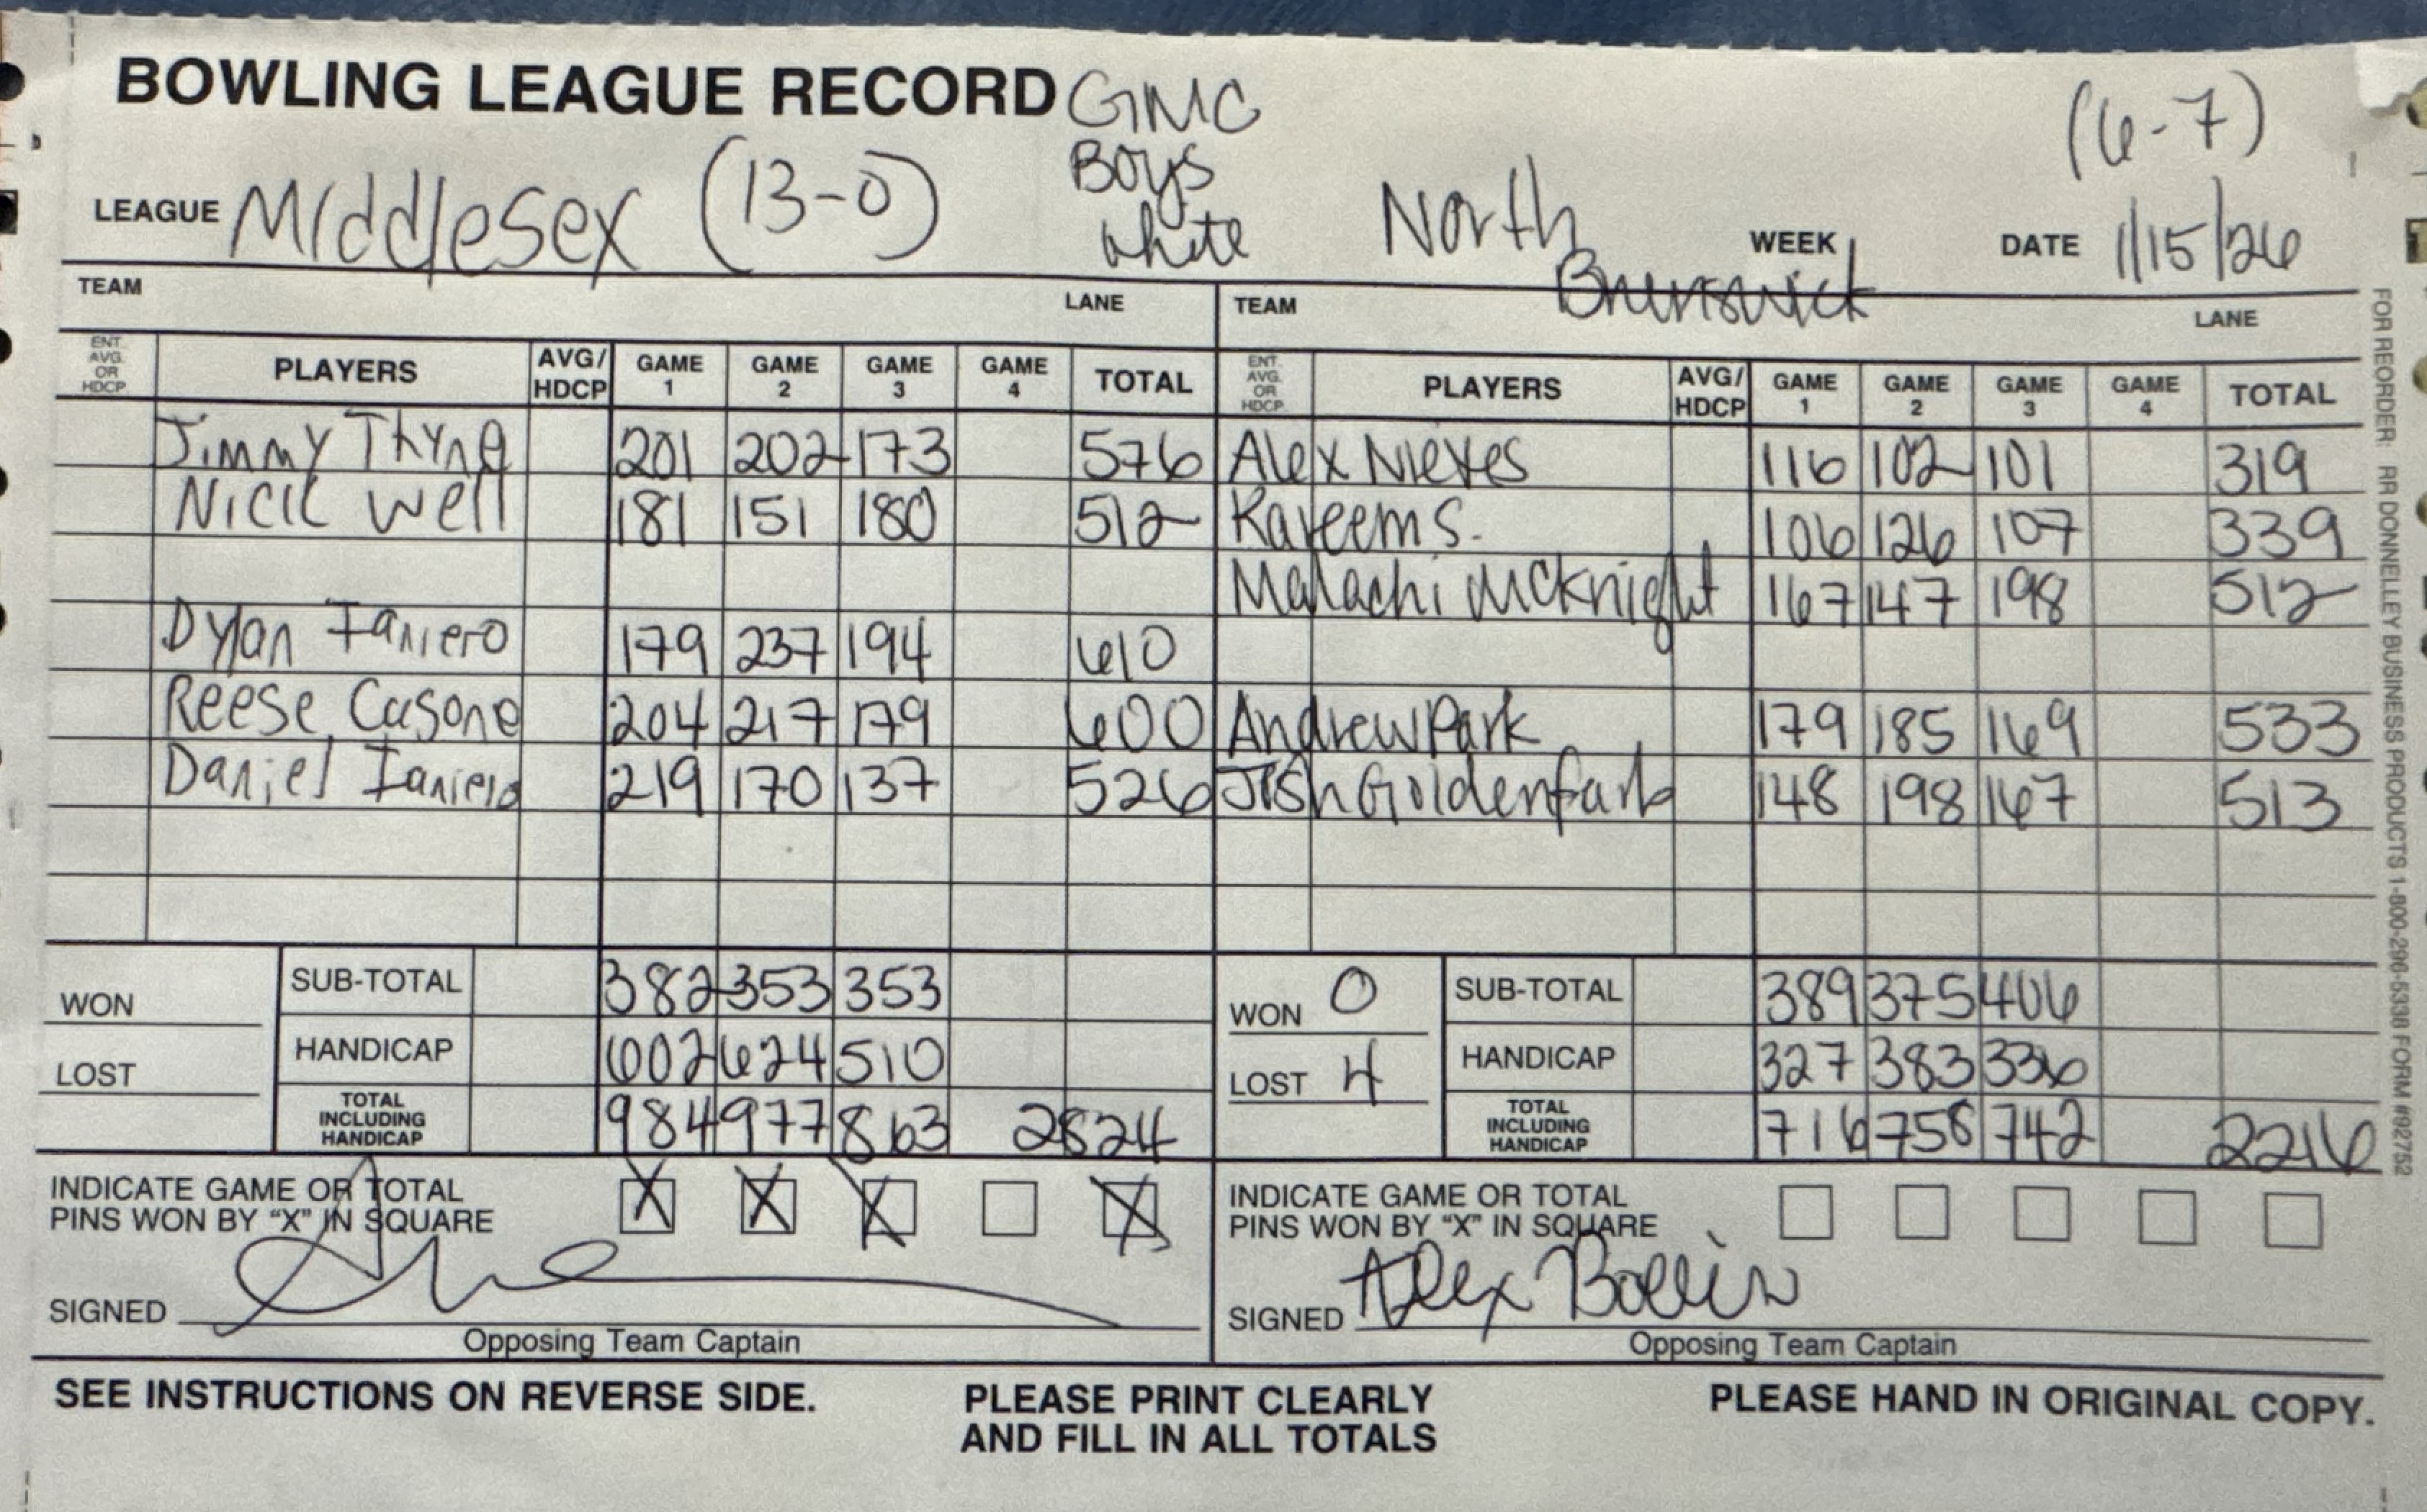 BOWLING LEAGUE RECORD GMC
Boys
White
(6-7)
LEAGUE Middlesex (13-0) North Brunswick WEEK DATE 1/15/26
TEAM LANE TEAM LANE
ENT. AVG. OR HDCP. PLAYERS AVG/HDCP GAME 1 GAME 2 GAME 3 GAME 4 TOTAL ENT. AVG. OR HDCP. PLAYERS AVG/HDCP GAME 1 GAME 2 GAME 3 GAME 4 TOTAL
Jimmy Thyne 201 202 173 576 Alex Nieves 116 102 101 319
Nick Well 181 151 180 512 Kareem S. 106 126 107 339
Malachi McKnight 167 147 198 512
Dylan Ianiero 179 237 194 610
Reese Casone 204 217 179 600 Andrew Park 179 185 169 533
Daniel Ianiero 219 170 137 526 Josh Goldenfarb 148 198 167 513
SUB-TOTAL 382 353 353 SUB-TOTAL 389 375 406
WON WON 0
HANDICAP 602 624 510 HANDICAP 327 383 336
LOST LOST 4
TOTAL INCLUDING HANDICAP 984 977 863 2824 TOTAL INCLUDING HANDICAP 716 758 742 2216
INDICATE GAME OR TOTAL X X X X INDICATE GAME OR TOTAL
PINS WON BY “X” IN SQUARE PINS WON BY “X” IN SQUARE
SIGNED SIGNED Alex Bollin
Opposing Team Captain Opposing Team Captain
SEE INSTRUCTIONS ON REVERSE SIDE. PLEASE PRINT CLEARLY PLEASE HAND IN ORIGINAL COPY.
AND FILL IN ALL TOTALS
FOR REORDER: RR DONNELLEY BUSINESS PRODUCTS 1-800-296-5338 FORM #92752